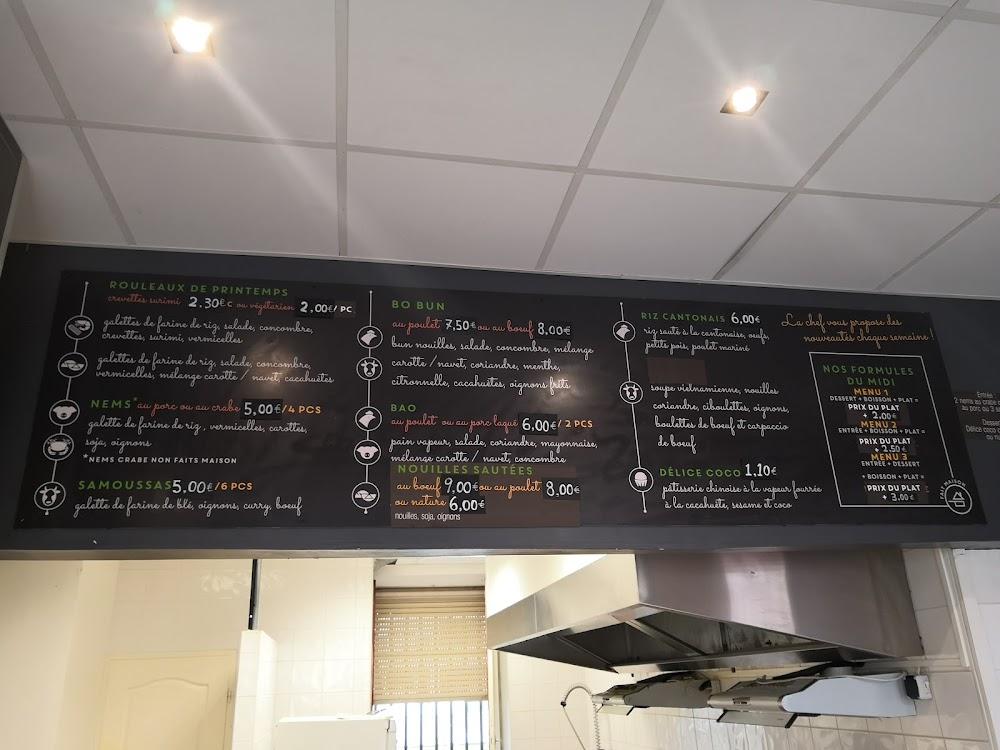 ROULEAUX DE PRINTEMPS
crevettes surimi 2.30€ ou végétarien 2,00€/ PC
galettes de farine de riz, salade, concombre,
crevettes, surimi, vermicelles
galettes de farine de riz, salade, concombre,
vermicelles, mélange carotte / navet, cacahuètes
NEMS* au porc ou au crabe 5,00€/4 PCS
galette de farine de riz, vermicelles, carottes,
soja, oignons
*NEMS CRABE NON FAITS MAISON
SAMOUSSAS 5,00€/6 PCS
galette de farine de blé, oignons, curry, boeuf
BO BUN
au poulet 7,50€ ou au boeuf 8,00€
bun nouilles, salade, concombre, mélange
carotte / navet, coriandre, menthe,
citronnelle, cacahuètes, oignons frits
BAO
au poulet ou au porc laqué 6,00€/ 2 PCS
pain vapeur, salade, coriandre, mayonnaise,
mélange carotte / navet, concombre
NOUILLES SAUTÉES
au boeuf 9,00€ ou au poulet 8,00€
ou nature 6,00€
nouilles, soja, oignons
RIZ CANTONAIS 6,00€
riz sauté à la cantonaise, oeufs,
petits pois, poulet mariné
soupe vietnamienne, nouilles
coriandre, ciboulettes, oignons,
boulettes de boeuf et carpaccio
de boeuf
DÉLICE COCO 1,10€
pâtisserie chinoise à la vapeur fourrée
à la cacahuète, sesame et coco
La chef vous propose des
nouveautés chaque semaine !
NOS FORMULES
DU MIDI
MENU 1
DESSERT + BOISSON + PLAT =
PRIX DU PLAT
+ 2,00€
MENU 2
ENTRÉE + BOISSON + PLAT =
PRIX DU PLAT
+ 2,50€
MENU 3
ENTRÉE + DESSERT
+ BOISSON + PLAT =
PRIX DU PLAT
+ 3,00€
FAIT MAISON
Entrée
2 nems au crabe
au porc ou 3
Dessert
Délice coco